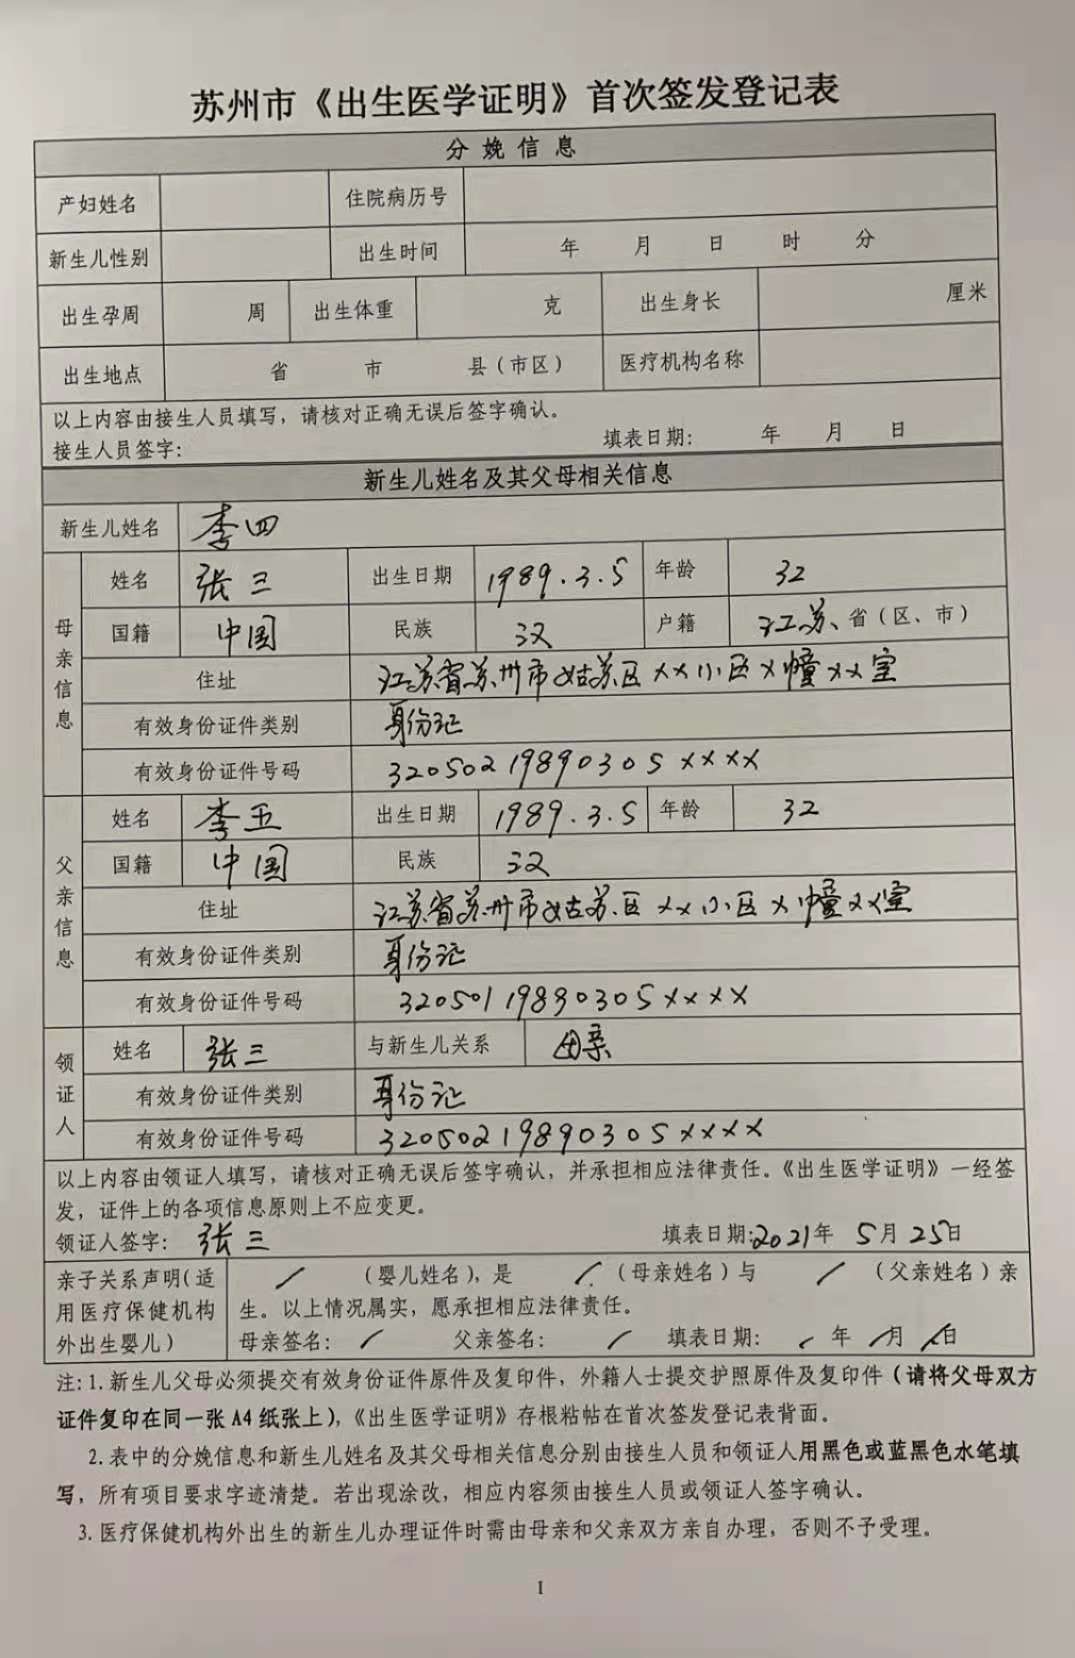 苏州市《出生医学证明》首次签发登记表
分 娩 信 息
产妇姓名 住院病历号
新生儿性别 出生时间 年 月 日 时 分
出生孕周 周 出生体重 克 出生身长 厘米
出生地点 省 市 县(市区) 医疗机构名称
以上内容由接生人员填写，请核对正确无误后签字确认。
接生人员签字: 填表日期: 年 月 日
新生儿姓名及其父母相关信息
新生儿姓名 李四
母亲信息
姓名 张三 出生日期 1989.3.5 年龄 32
国籍 中国 民族 汉 户籍 江苏 省(区、市)
住址 江苏省苏州市姑苏区××小区×幢××室
有效身份证件类别 身份证
有效身份证件号码 32050219890305××××
父亲信息
姓名 李五 出生日期 1989.3.5 年龄 32
国籍 中国 民族 汉
住址 江苏省苏州市姑苏区××小区×幢××室
有效身份证件类别 身份证
有效身份证件号码 32050119890305××××
领证人
姓名 张三 与新生儿关系 母亲
有效身份证件类别 身份证
有效身份证件号码 32050219890305××××
以上内容由领证人填写，请核对正确无误后签字确认，并承担相应法律责任。《出生医学证明》一经签
发，证件上的各项信息原则上不应变更。
领证人签字: 张三 填表日期:2021年 5月25日
亲子关系声明(适 / (婴儿姓名)，是 / (母亲姓名)与 / (父亲姓名)亲
用医疗保健机构 生。以上情况属实，愿承担相应法律责任。
外出生婴儿) 母亲签名: / 父亲签名: / 填表日期: / 年 / 月 / 日
注:1.新生儿父母必须提交有效身份证件原件及复印件，外籍人士提交护照原件及复印件(请将父母双方
证件复印在同一张A4纸张上)，《出生医学证明》存根粘帖在首次签发登记表背面。
2.表中的分娩信息和新生儿姓名及其父母相关信息分别由接生人员和领证人用黑色或蓝黑色水笔填
写，所有项目要求字迹清楚。若出现涂改，相应内容须由接生人员或领证人签字确认。
3.医疗保健机构外出生的新生儿办理证件时需由母亲和父亲双方亲自办理，否则不予受理。
1